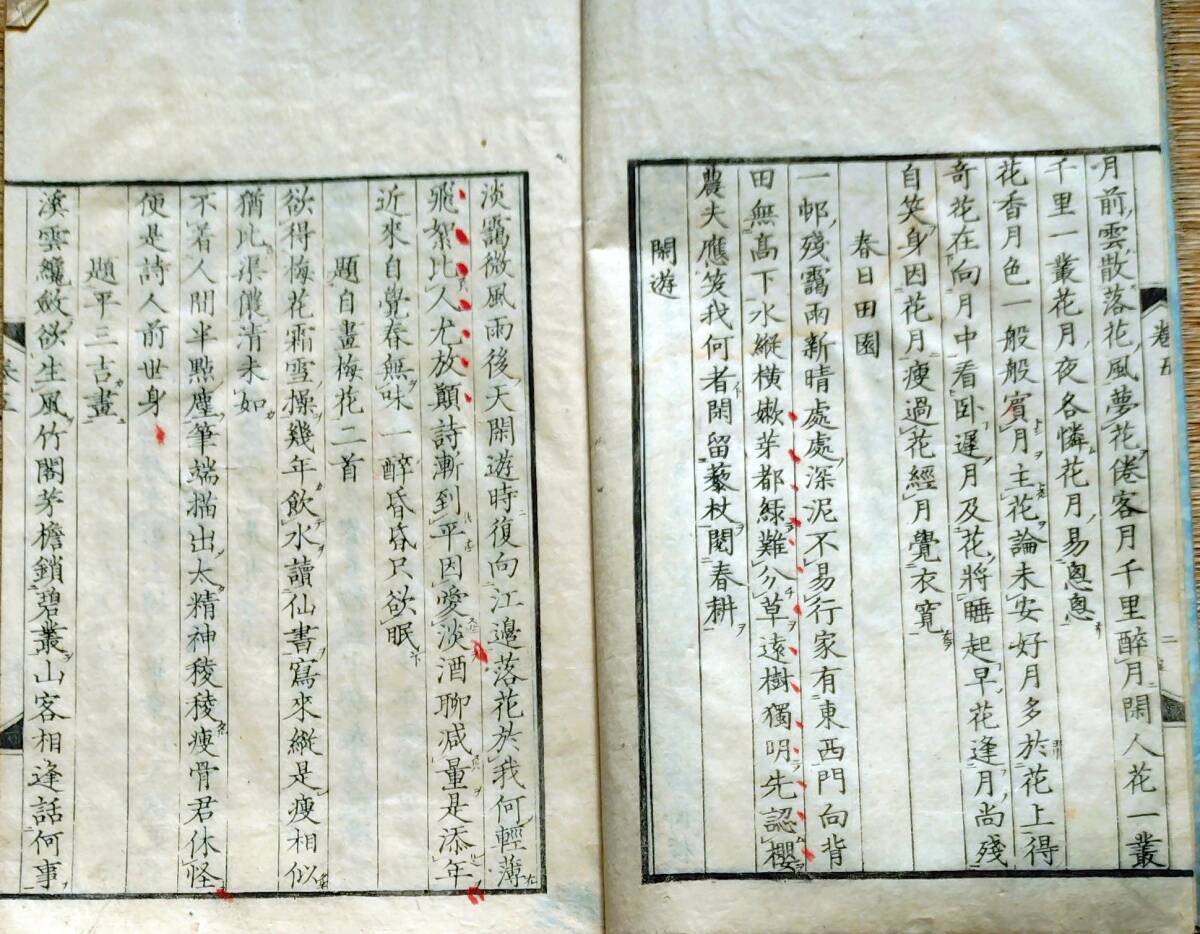 卷五
二
月前雲散落花風夢花倦客月千里醉月閑人花一叢
千里一叢花月夜各憐花月易悤悤
花香月色一般般賓月主花論未安好月多於花上得
奇花在向月中看臥遲月及花將睡起早花逢月尚殘
自笑身因花月瘦過花經月覺衣寬
春日田園
一邨殘靄雨新晴處處深泥不易行家有東西門向背
田無高下水縱橫嫩芽都綠難分草遠樹獨明先認櫻
農夫應笑我何者閑留藜杖閱春耕
閑遊
淡靄微風雨後天閑遊時復向江邊落花於我何輕薄
飛絮比人尤放顛詩漸到平因愛淡酒聊減量是添年
近來自覺春無味一醉昏昏只欲眠
題自畫梅花二首
欲得梅花霜雪操幾年飲水讀仙書寫來縱是瘦相似
猶比渠儂清未如
不著人間半點塵筆端描出太精神稜稜瘦骨君休怪
便是詩人前世身
題平三吉畫
溪雲纔斂欲生風竹閣茅檐鎖碧叢山客相逢話何事